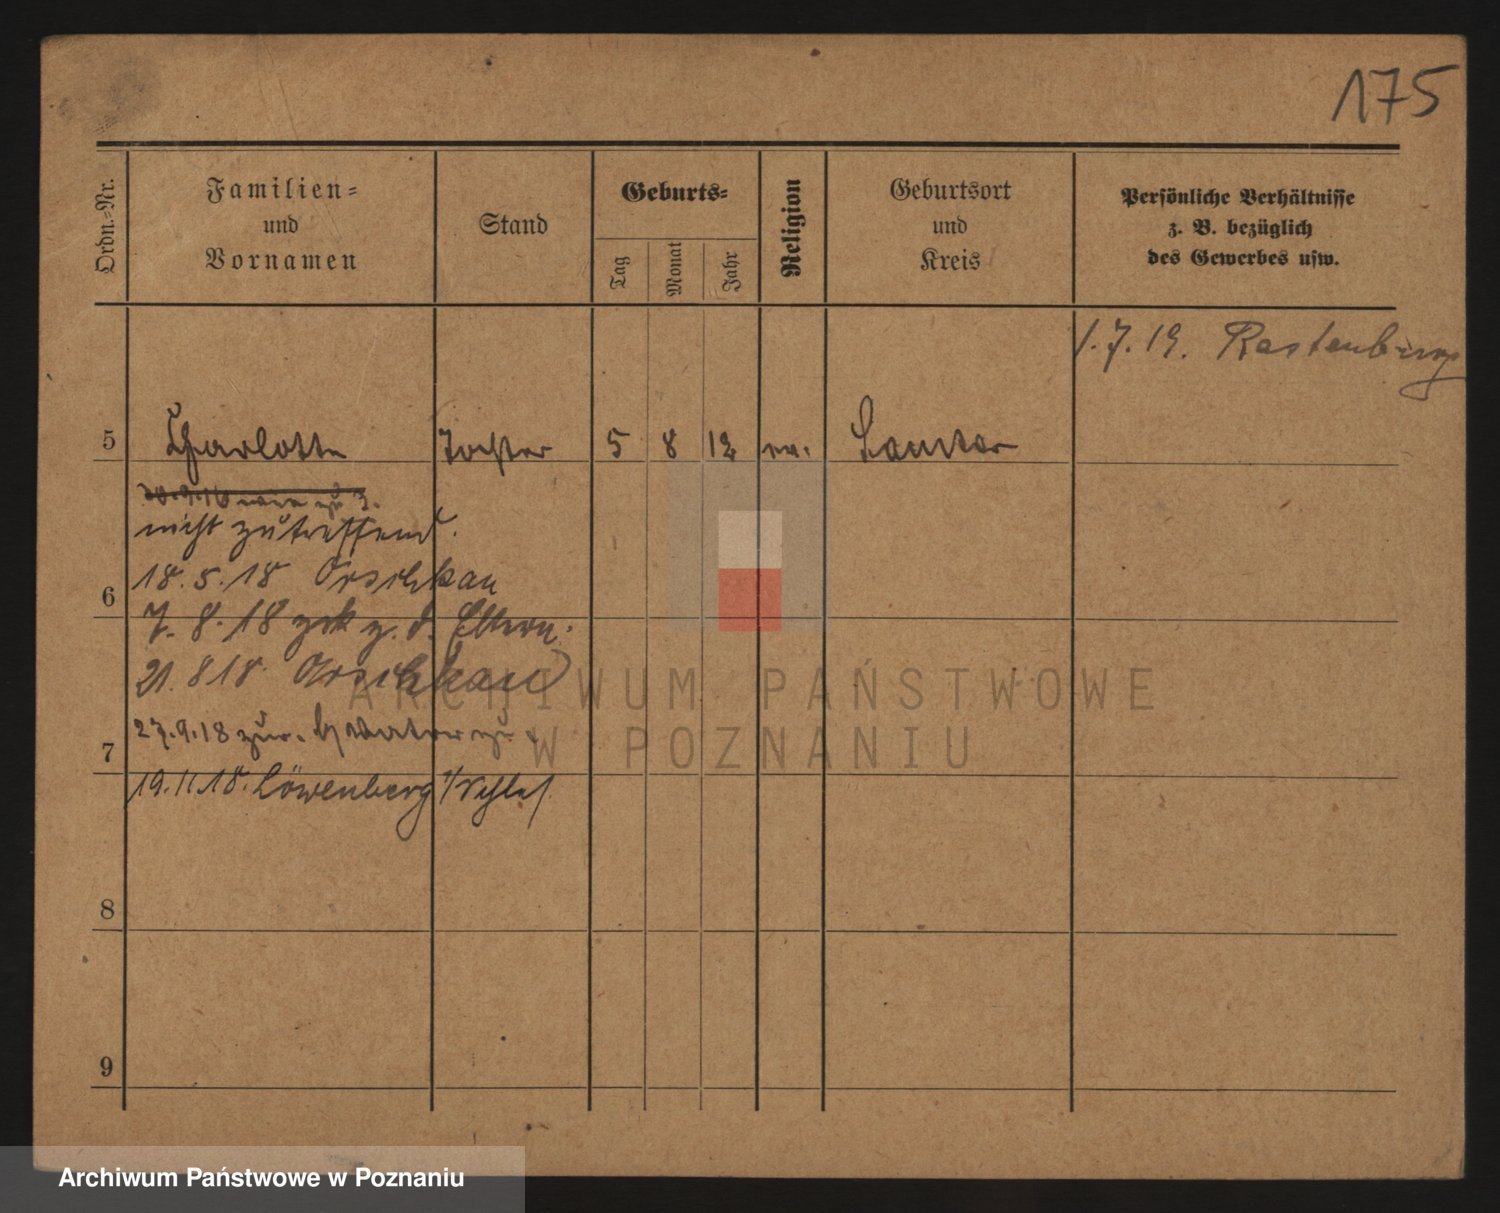 175
Ordn.=Nr.
Familien=
und
Vornamen
Stand
Geburts=
Tag
Monat
Jahr
Religion
Geburtsort
und
Kreis
Persönliche Verhältnisse
z. B. bezüglich
des Gewerbes usw.
1.7.19. Rastenburg
5 Charlotte Tochter 5 8 12 ev.
30.9.16 zu 3.
nicht zutreffend.
18.5.18 Orschkau
6
7.8.18 zrk z. d. Eltern.
21.8.18 Orschkau
27.9.18 zur.
7
19.11.18. Löwenberg i/Schles.
8
9
ARCHIWUM PAŃSTWOWE
W POZNANIU
Archiwum Państwowe w Poznaniu